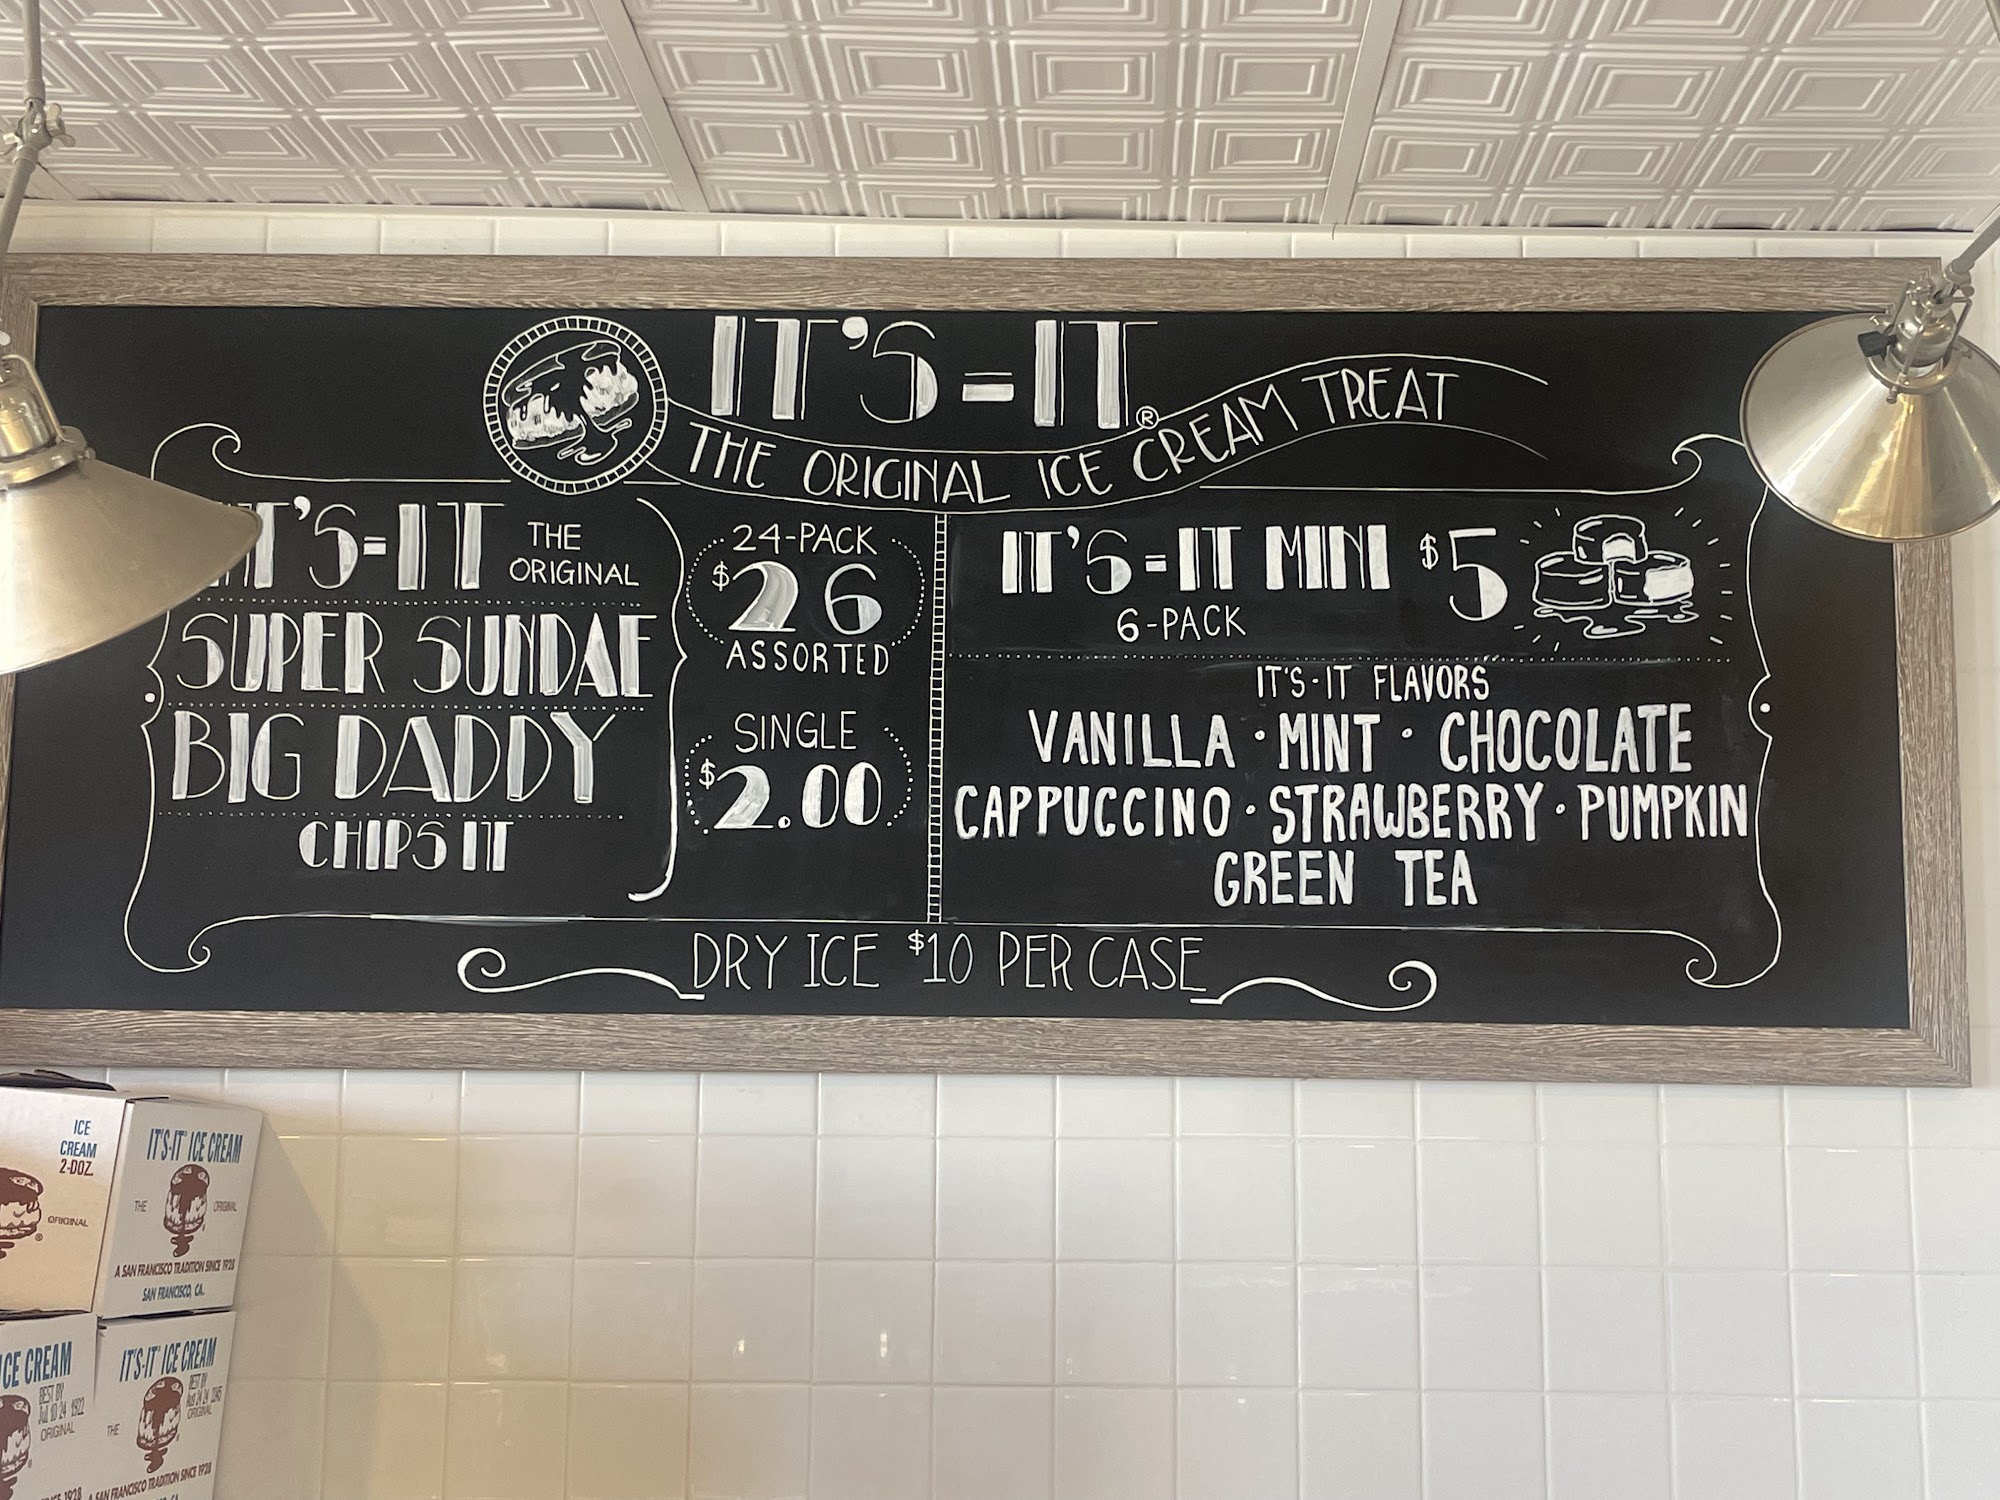 IT'S-IT®
THE ORIGINAL ICE CREAM TREAT
IT'S-IT THE ORIGINAL
SUPER SUNDAE
BIG DADDY
CHIPS IT
24-PACK
$26
ASSORTED
SINGLE
$2.00
IT'S-IT MINI $5
6-PACK
IT'S-IT FLAVORS
VANILLA • MINT • CHOCOLATE
CAPPUCCINO • STRAWBERRY • PUMPKIN
GREEN TEA
DRY ICE $10 PER CASE
ICE
CREAM
2-DOZ.
ORIGINAL
®
IT'S-IT® ICE CREAM
THE ORIGINAL
A SAN FRANCISCO TRADITION SINCE 1928
SAN FRANCISCO, CA.
ICE CREAM
BEST BY
ORIGINAL
SINCE 1928
IT'S-IT® ICE CREAM
BEST BY
THE ORIGINAL
A SAN FRANCISCO TRADITION SINCE 1928